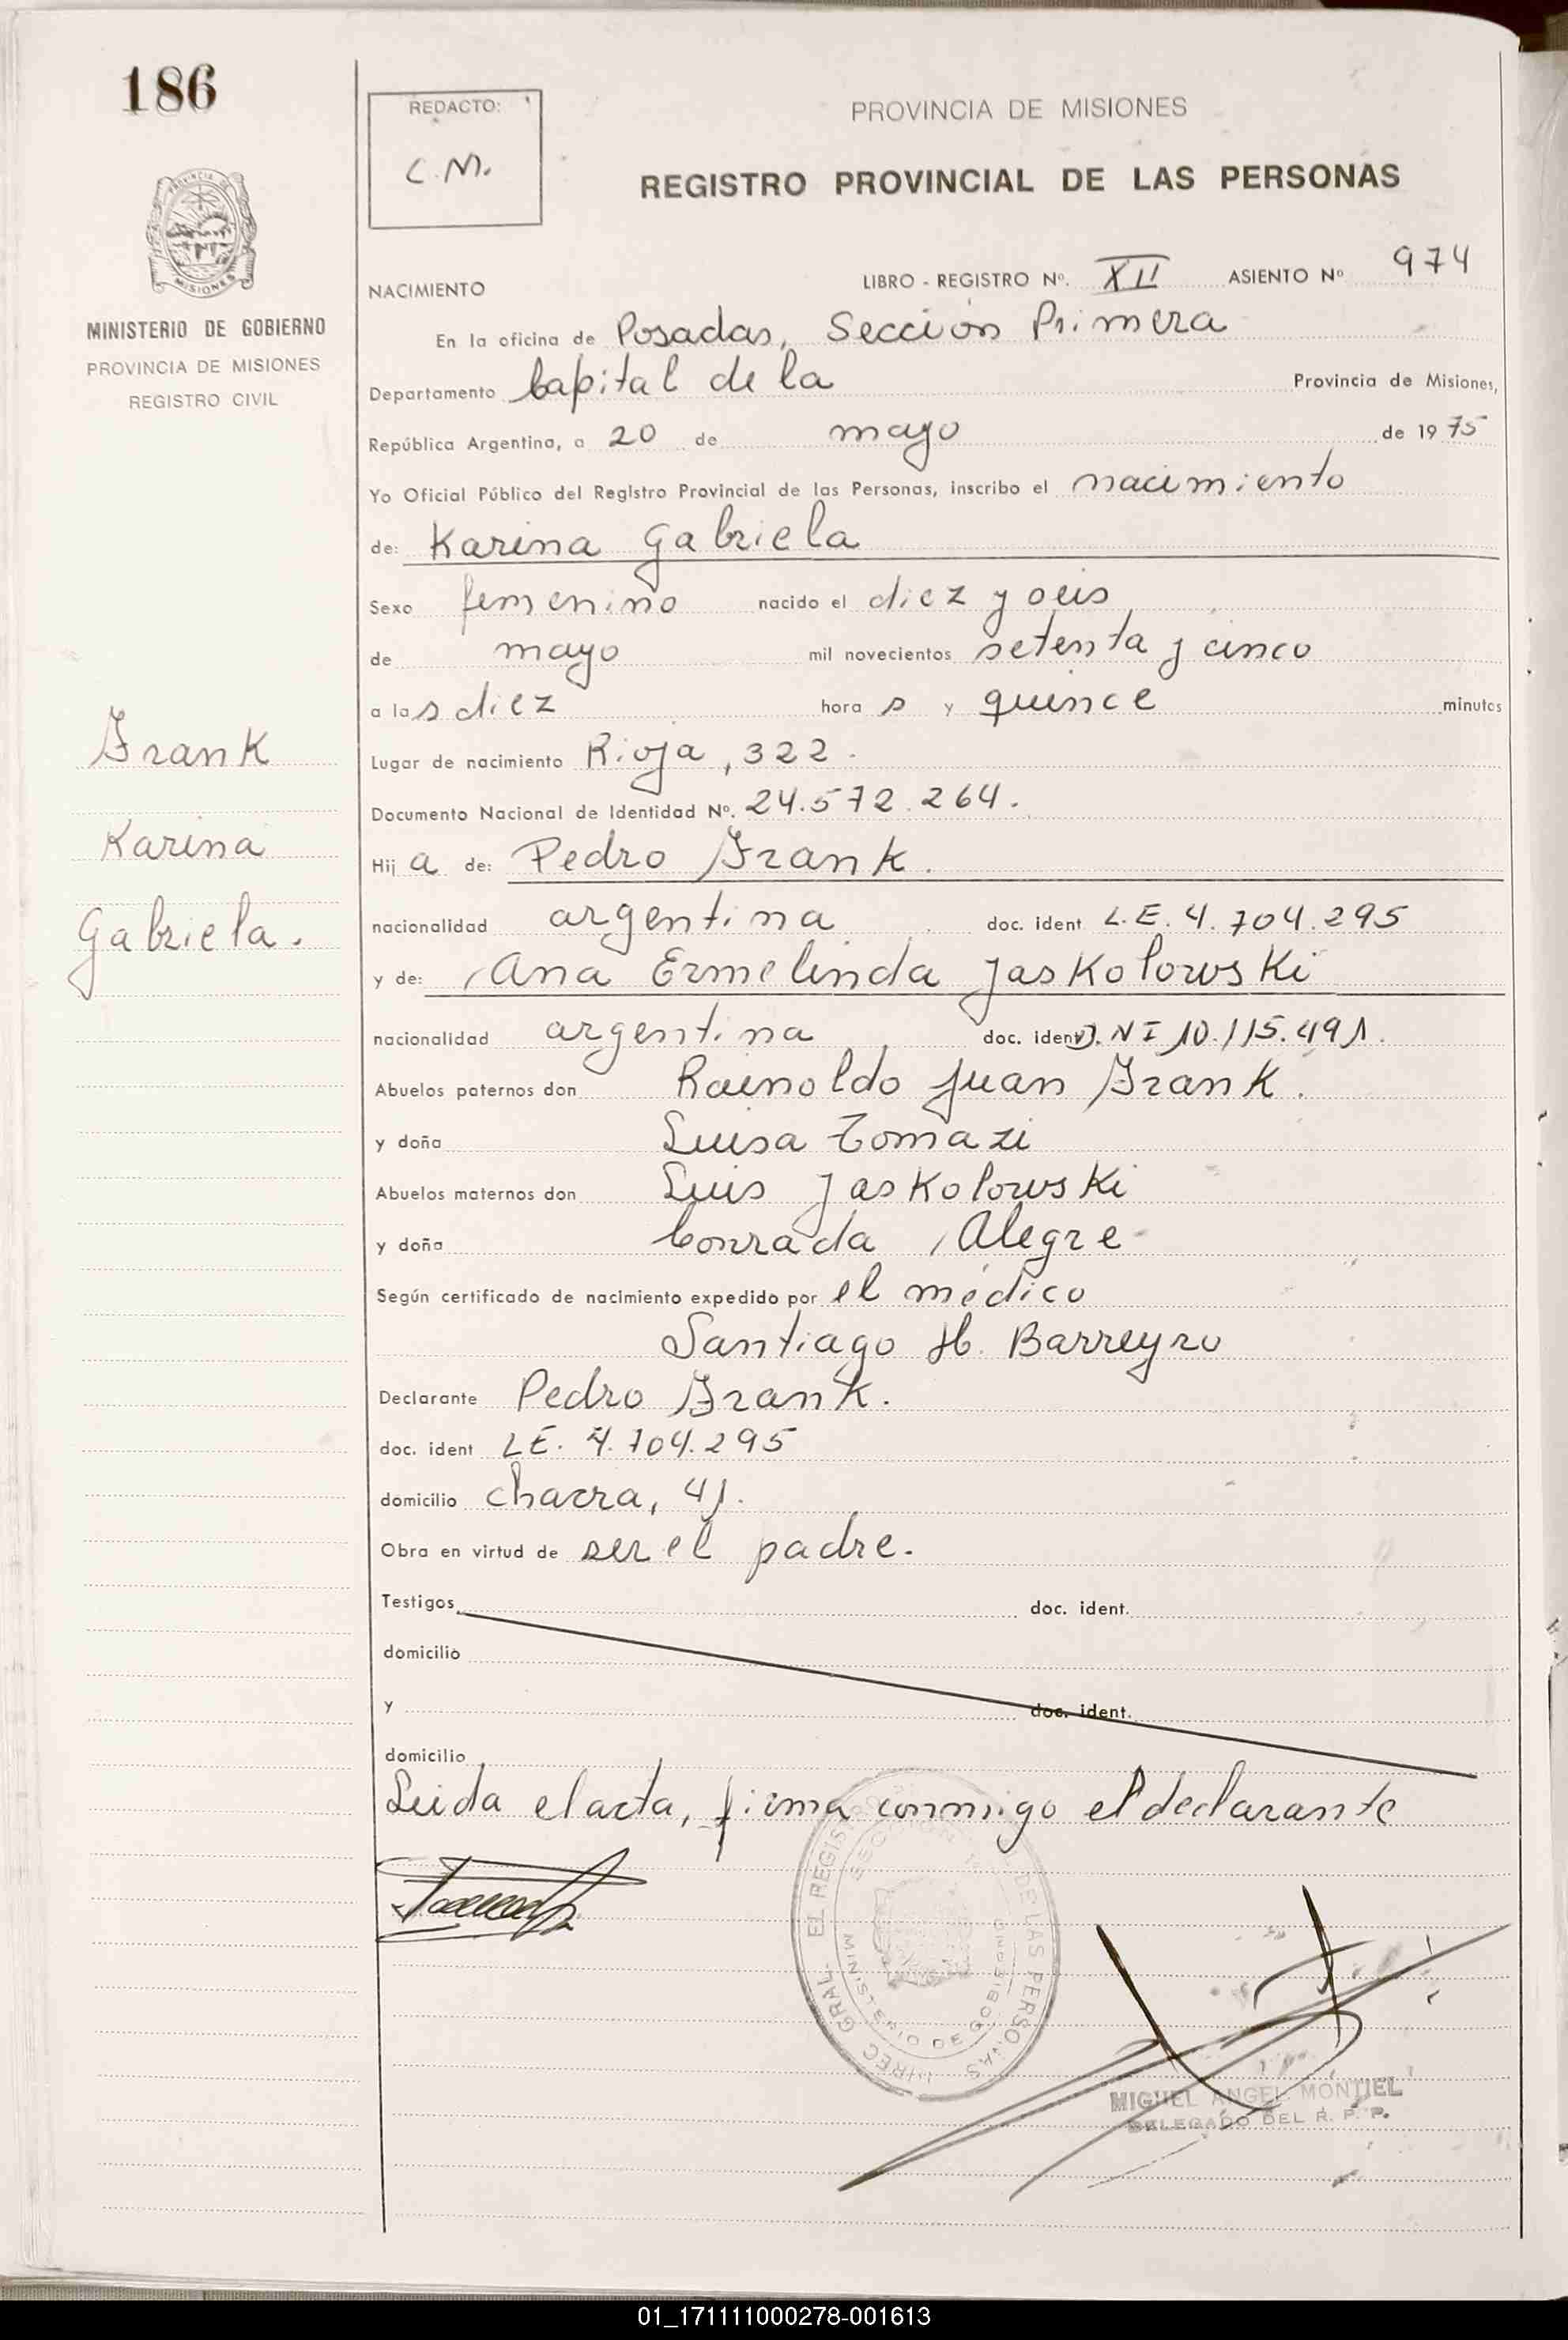 186
REDACTO:
C.M.
PROVINCIA DE MISIONES
REGISTRO PROVINCIAL DE LAS PERSONAS
MISIONES
MINISTERIO DE GOBIERNO
PROVINCIA DE MISIONES
REGISTRO CIVIL
NACIMIENTO
LIBRO - REGISTRO Nº. XII ASIENTO Nº 974
En la oficina de Posadas, Sección Primera
Departamento Capital de la Provincia de Misiones,
República Argentina, a 20 de mayo de 1975
Yo Oficial Público del Registro Provincial de las Personas, inscribo el nacimiento
de: Karina Gabriela
Sexo femenino nacido el diez y seis
de mayo mil novecientos setenta y cinco
a las diez horas y quince minutos
Lugar de nacimiento Rioja, 322.
Documento Nacional de Identidad Nº. 24.572.264.
Frank
Karina
Gabriela.
Hija de: Pedro Frank.
nacionalidad argentina doc. ident L.E. 4.704.295
y de: Ana Ermelinda Jaskolowski
nacionalidad argentina doc. ident D.N.I 10.115.491.
Abuelos paternos don Rainoldo Juan Frank.
y doña Luisa Tomazi
Abuelos maternos don Luis Jaskolowski
y doña Conrada Alegre
Según certificado de nacimiento expedido por el médico
Santiago H. Barreyro
Declarante Pedro Frank.
doc. ident L.E. 4.704.295
domicilio chacra, 41.
Obra en virtud de ser el padre.
Testigos doc. ident.
domicilio
y doc. ident.
domicilio
Leida el acta, firma conmigo el declarante
DIREC. GRAL. EL REGISTRO DE LAS PERSONAS
MINISTERIO DE GOBIERNO
MIGUEL ANGEL MONTIEL
DELEGADO DEL R. P. P.
01_171111000278-001613